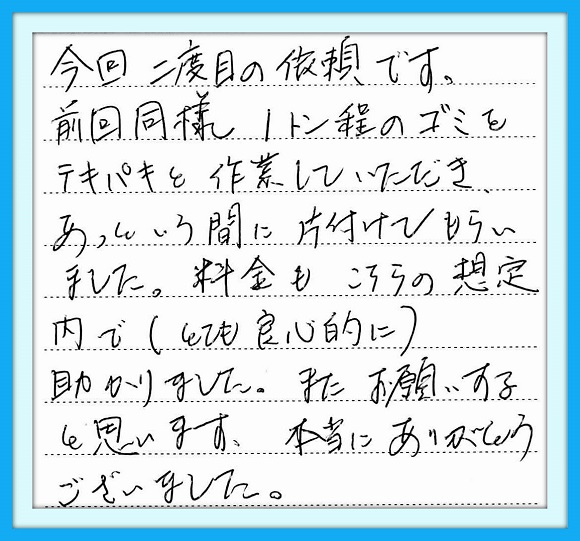 今回二度目の依頼です。
前回同様1トン程のゴミを
テキパキと作業していただき、
あっという間に片付けてもらい
ました。料金もこちらの想定
内で(とても良心的に)
助かりました。またお願いする
と思います、本当にありがとう
ございました。